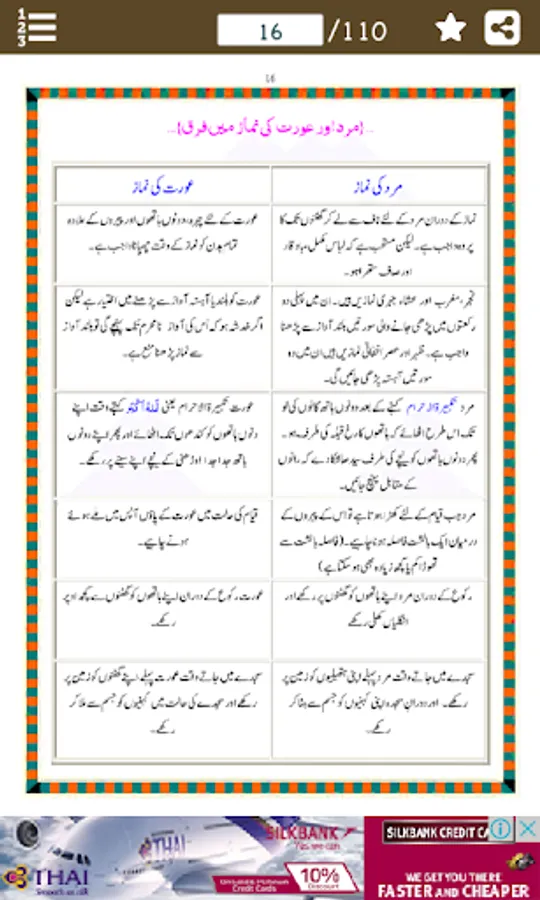 1
2
3
16
/110
16
...{مرد اور عورت کی نماز میں فرق}...
مرد کی نماز
عورت کی نماز
نماز کے دوران مرد کے لئے ناف سے لے کر گھٹنوں تک کا
پردہ واجب ہے۔ لیکن مستحب ہے کہ لباس مکمل، باوقار
اور صاف ستھرا ہو۔
عورت کے لئے چہرہ، دونوں ہاتھوں اور پیروں کے علاوہ
تمام بدن کو نماز کے وقت چھپانا واجب ہے۔
فجر، مغرب اور عشاء جہری نمازیں ہیں۔ ان میں پہلی دو
رکعتوں میں پڑھی جانے والی سورتیں بلند آواز سے پڑھنا
واجب ہے۔ ظہر اور عصر اخفاتی نمازیں ہیں ان میں دو
سورتیں آہستہ پڑھی جائیں گی۔
عورت کو بلند یا آہستہ آواز سے پڑھنے میں اختیار ہے لیکن
اگر خدشہ ہو کہ اُس کی آواز نامحرم تک پہنچے گی تو بلند آواز
سے نماز پڑھنا منع ہے۔
مرد تکبیرۃ الاحرام کہنے کے بعد دونوں ہاتھ کانوں کی لو
تک اس طرح اٹھائے کہ ہاتھوں کا رخ قبلہ کی طرف ہو۔
پھر دونوں ہاتھوں کو نیچے کی طرف سیدھا لٹکا دے کہ رانوں
کے مقابل پہنچ جائیں۔
عورت تکبیرۃ الاحرام یعنی اَللہُ اَکْبَرُ کہتے وقت اپنے
دونوں ہاتھوں کو کندھوں تک اٹھائے اور پھر اپنے دونوں
ہاتھ جدا جدا اوڑھنی کے نیچے اپنے سینے پر رکھے۔
مرد جب قیام کے لئے کھڑا ہوتا ہے تو اس کے پیروں کے
درمیان ایک بالشت فاصلہ ہونا چاہیے۔ (فاصلہ بالشت سے
تھوڑا کم یا کچھ زیادہ بھی ہو سکتا ہے)
قیام کی حالت میں عورت کے پاؤں آپس میں ملے ہوئے
ہونے چاہیے۔
رکوع کے دوران مرد اپنے ہاتھوں کو گھٹنوں پر رکھے اور
انگلیاں کھلی رکھے
عورت رکوع کے دوران اپنے ہاتھوں کو گھٹنوں سے کچھ اوپر
رکھے۔
سجدے میں جاتے وقت مرد پہلے اپنی ہتھیلیوں کو زمین پر
رکھے۔ اور دوران سجدہ اپنی کہنیوں کو جسم سے ہٹا کر
رکھے۔
سجدے میں جاتے وقت عورت پہلے اپنے گھٹنوں کو زمین پر
رکھے اور سجدے کی حالت میں کہنیوں کو جسم سے ملا کر
رکھے۔
THAI
THAI
Smooth as silk
SILKBANK
Yes we can
Credit Cards
10%
Discount
SILKBANK CREDIT CA
WE GET YOU THERE
FASTER AND CHEAPER